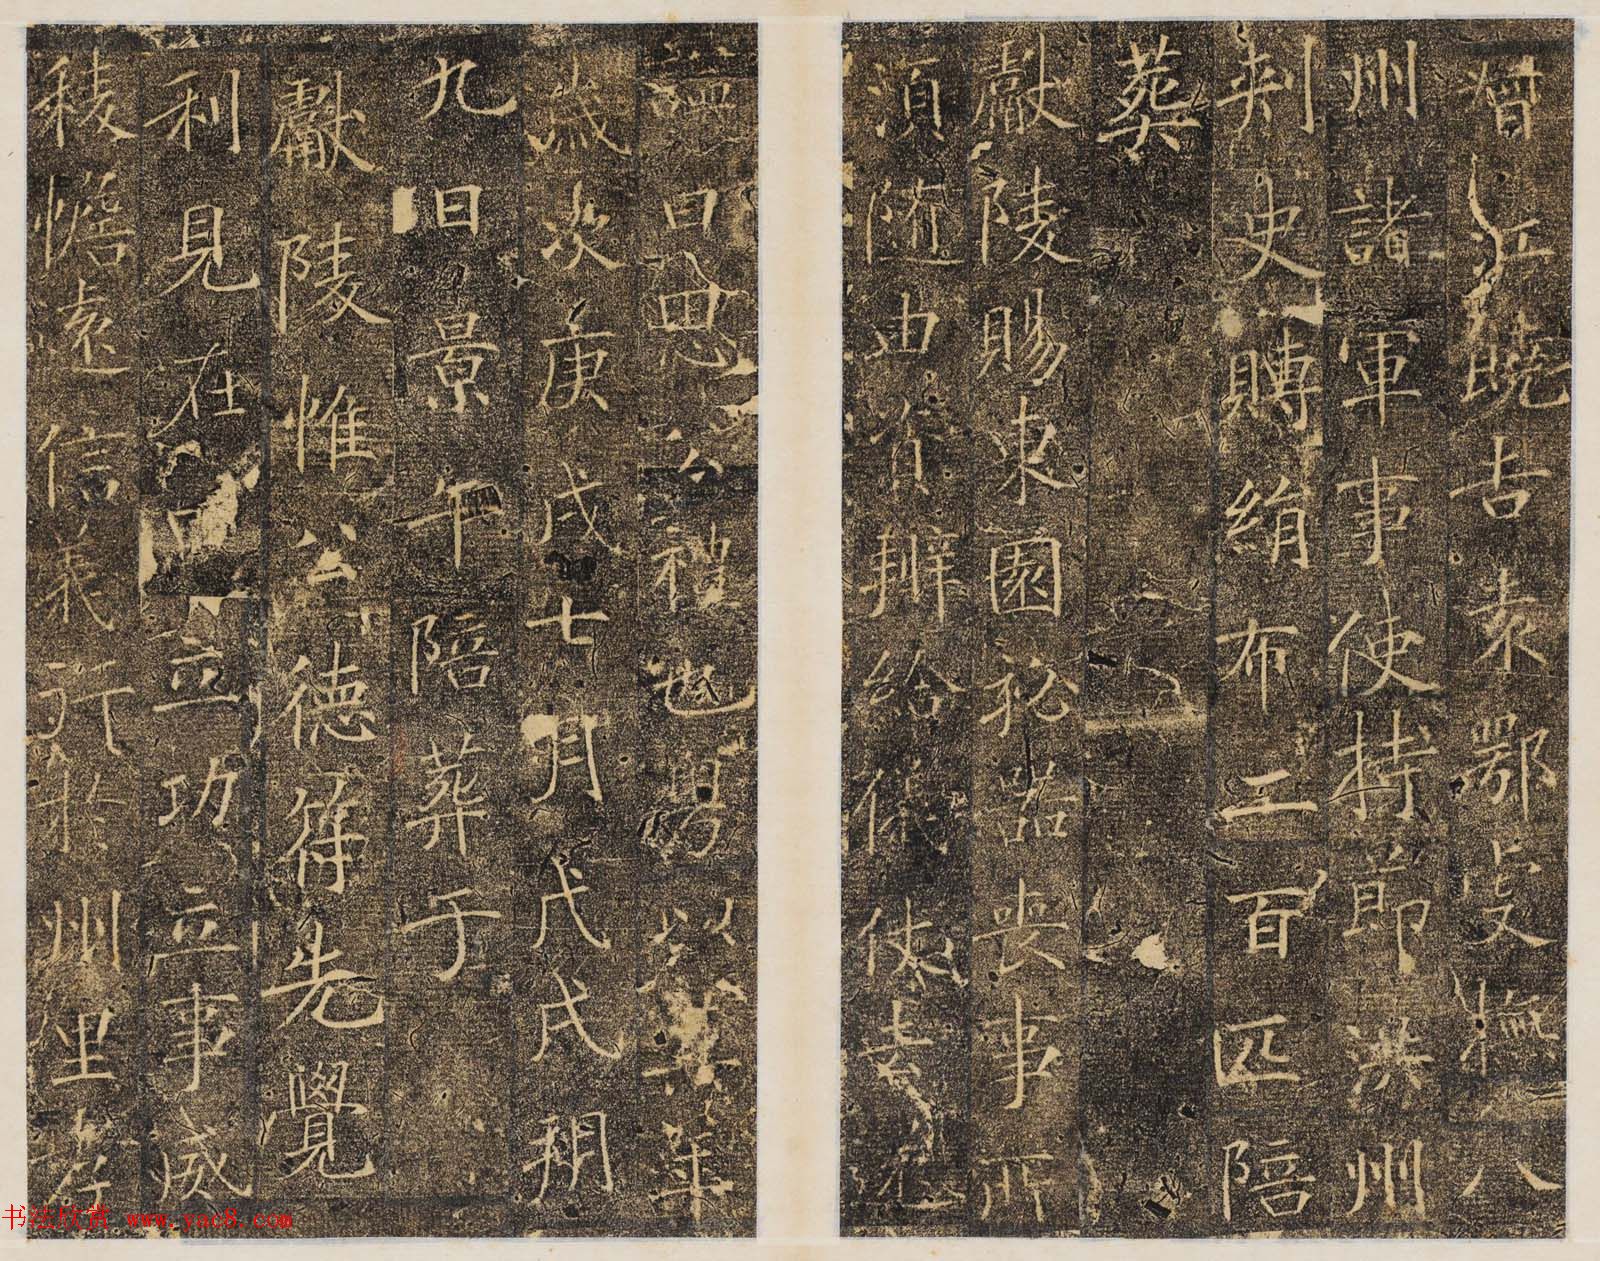 贈江饒吉袁鄂虔撫八
州諸軍事使持節洪州
刺史賻絹布二百匹陪
葬
獻陵賜東園秘器喪事所
須隨由資辦給儀仗去還
謚曰思公禮也粤以其年
歲次庚戌七月戊戌朔
九日景午陪葬于
獻陵惟公德符先覺
利見在田立功立事威
稜憺遠信義行於州里孝
书法欣赏 www.yac8.com